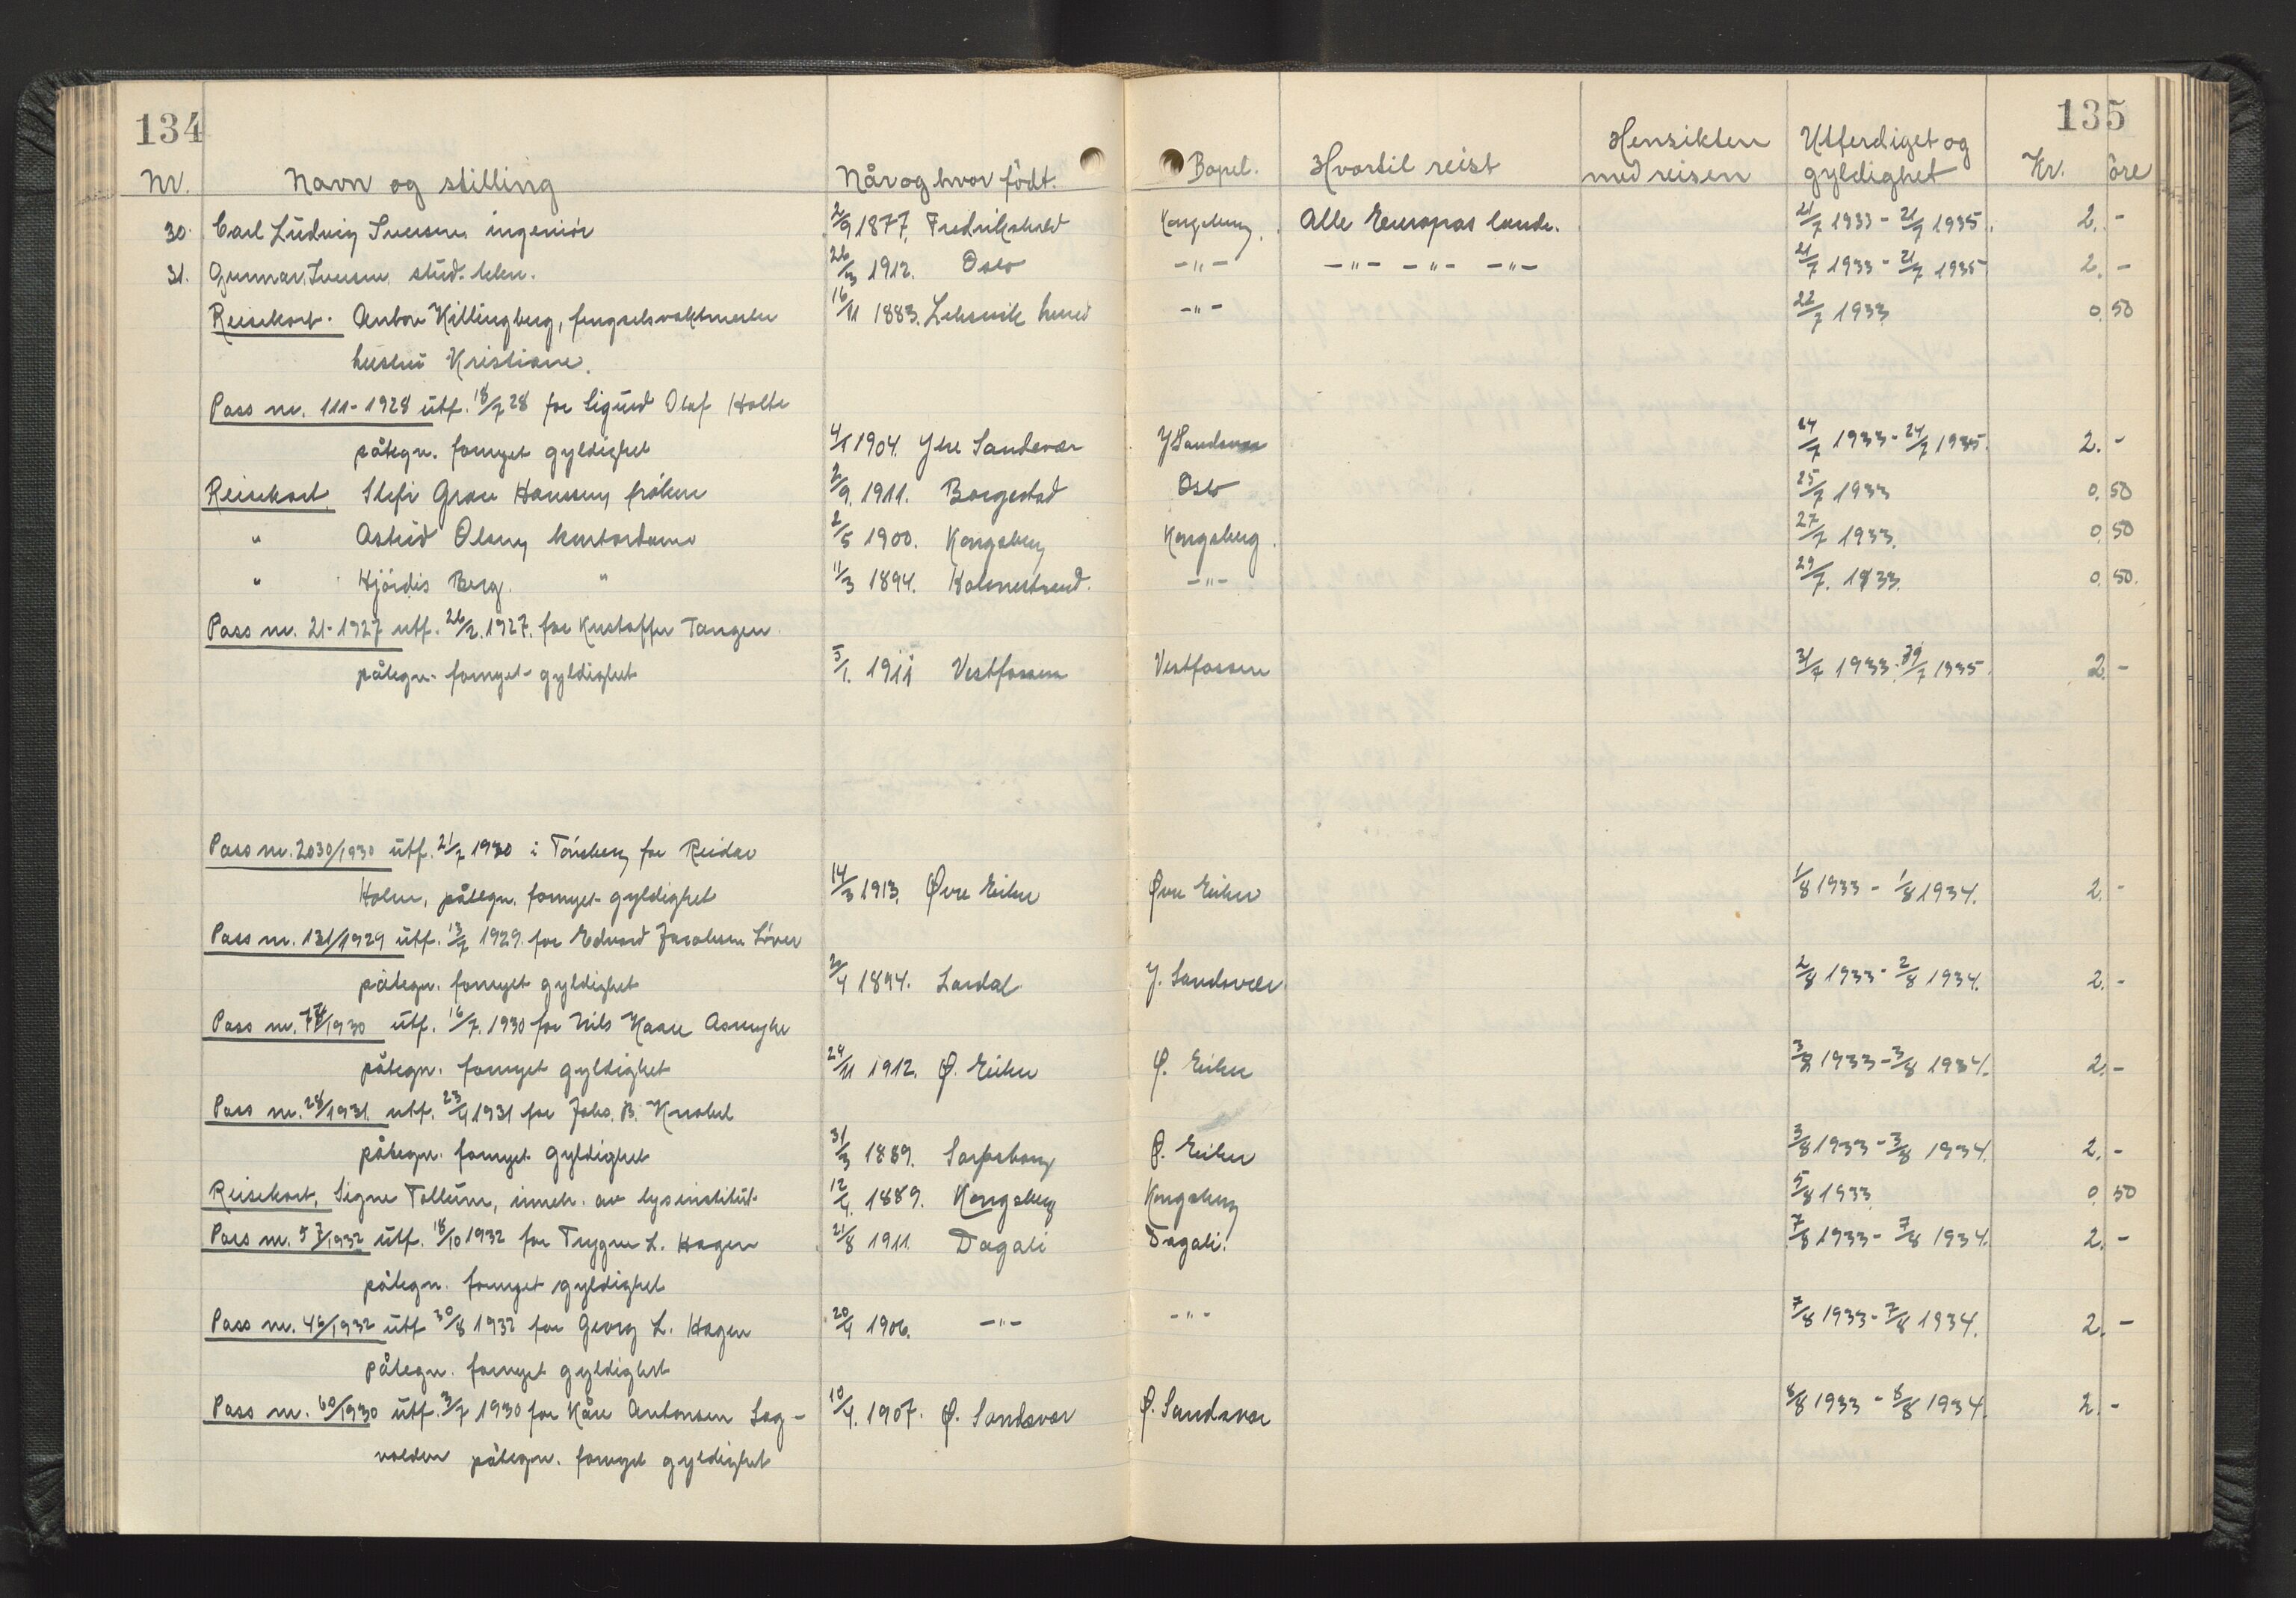 134
135
Nr. Navn og stilling Når og hvor født. Bopel. Hvortil reist Hensikten med reisen Utferdiget og gyldighet Kr. øre
30. Carl Ludvig Iversen, ingeniør 2/9 1877, Fredrikshald Kongsberg. Alle Europas lande. 21/7 1933 - 21/7 1935. 2. -
31. Gunnar Iversen, stud. 26/3 1912. Oslo -"- -"- -"- -"- 21/7 1933 - 21/7 1935 2. -
Reisekort. Anton Killingberg, fengselsvaktmester 16/11 1883. Leksvik herred -"- 22/7 1933 0. 50
hustru Kristiane.
Pass nr. 111-1928 utf. 18/7 28 for Sigurd Olaf Holte
påtegn. fornyet gyldighet 4/1 1904. Ytre Sandsvær Y Sandsvær 24/7 1933 - 24/7 1935. 2. -
Reisekort. Grau Hanssen, frøken 2/9. 1911. Borgestad Oslo 25/7 1933 0. 50
" Astrid Olsen, kontordame 2/5 1900. Kongsberg Kongsberg. 27/7 1933. 0. 50
" Hjørdis Berg. " 11/3 1894. Holmestrand. -"- 29/7. 1933. 0. 50.
Pass nr. 21-1927 utf. 26/2. 1927. for Kristoffer Tangen
påtegn. fornyet gyldighet 5/1. 1911 Vestfossen Vestfossen 31/7 1933 - 31/7 1935. 2. -
Pass nr. 2030/1930 utf. 21/7 1930 i Tønsberg for Reidar
Holm, påtegn. fornyet gyldighet 14/3 1913. Øvre Eiker Øvre Eiker 1/8 1933 - 1/8 1934. 2. -
Pass nr. 131/1929 utf. 13/7 1929 for Edvard Jacobsen
påtegn. fornyet gyldighet 2/4 1894. Lardal Y. Sandsvær 2/8 1933 - 2/8 1934. 2. -
Pass nr. /1930 utf. 16/7. 1930 for Nils Kaare
påtegn. fornyet gyldighet 24/11 1912. Ø. Eiker Ø. Eiker 3/8 1933 - 3/8 1934. 2. -
Pass nr. 28/1931. utf. 23/4 1931 for Johs. B.
påtegn. fornyet gyldighet 31/3 1889. Sarpsborg Ø. Eiker 3/8 1933 - 3/8 1934. 2. -
Reisekort, Signe Tollum, inneh. av lysinstitut 12/4. 1889. Kongsberg Kongsberg 5/8 1933 0. 50
Pass nr. 57/1932 utf. 18/10 1932 for Trygve L. Hagen 21/8 1911. Dagali Dagali. 7/8 1933 - 7/8 1934. 2. -
påtegn. fornyet gyldighet
Pass nr. 46/1932 utf 30/8 1932 for Georg L. Hagen 20/4 1906. -"- -"- 7/8 1933 - 7/8 1934. 2. -
påtegn. fornyet gyldighet
Pass nr. 60/1930 utf. 3/7 1930 for Kåre Antonsen Sag- 10/4. 1907. Ø. Sandsvær Ø. Sandsvær 8/8 1933 - 8/8 1934. 2. -
volden påtegn. fornyet gyldighet